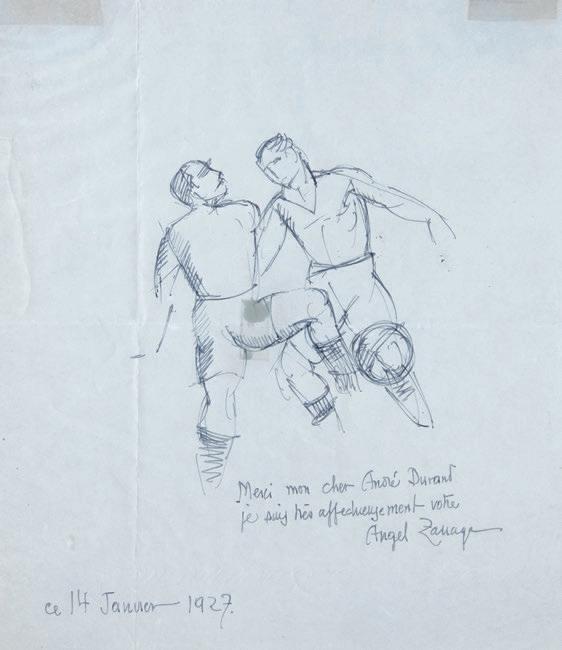 Merci mon cher André Durand
je suis très affectueusement votre
Angel Zarraga
ce 14 Janvier 1927.